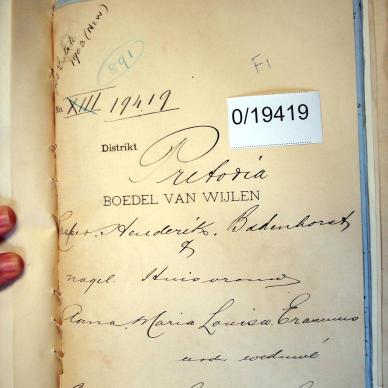 Estate
1903 (New)
591
F1
No. XIII 19419
0/19419
Distrikt Pretoria
BOEDEL VAN WIJLEN
Hendrik Badenhorst
&
nagel. Huisvrouw
Anna Maria Louisa Erasmus